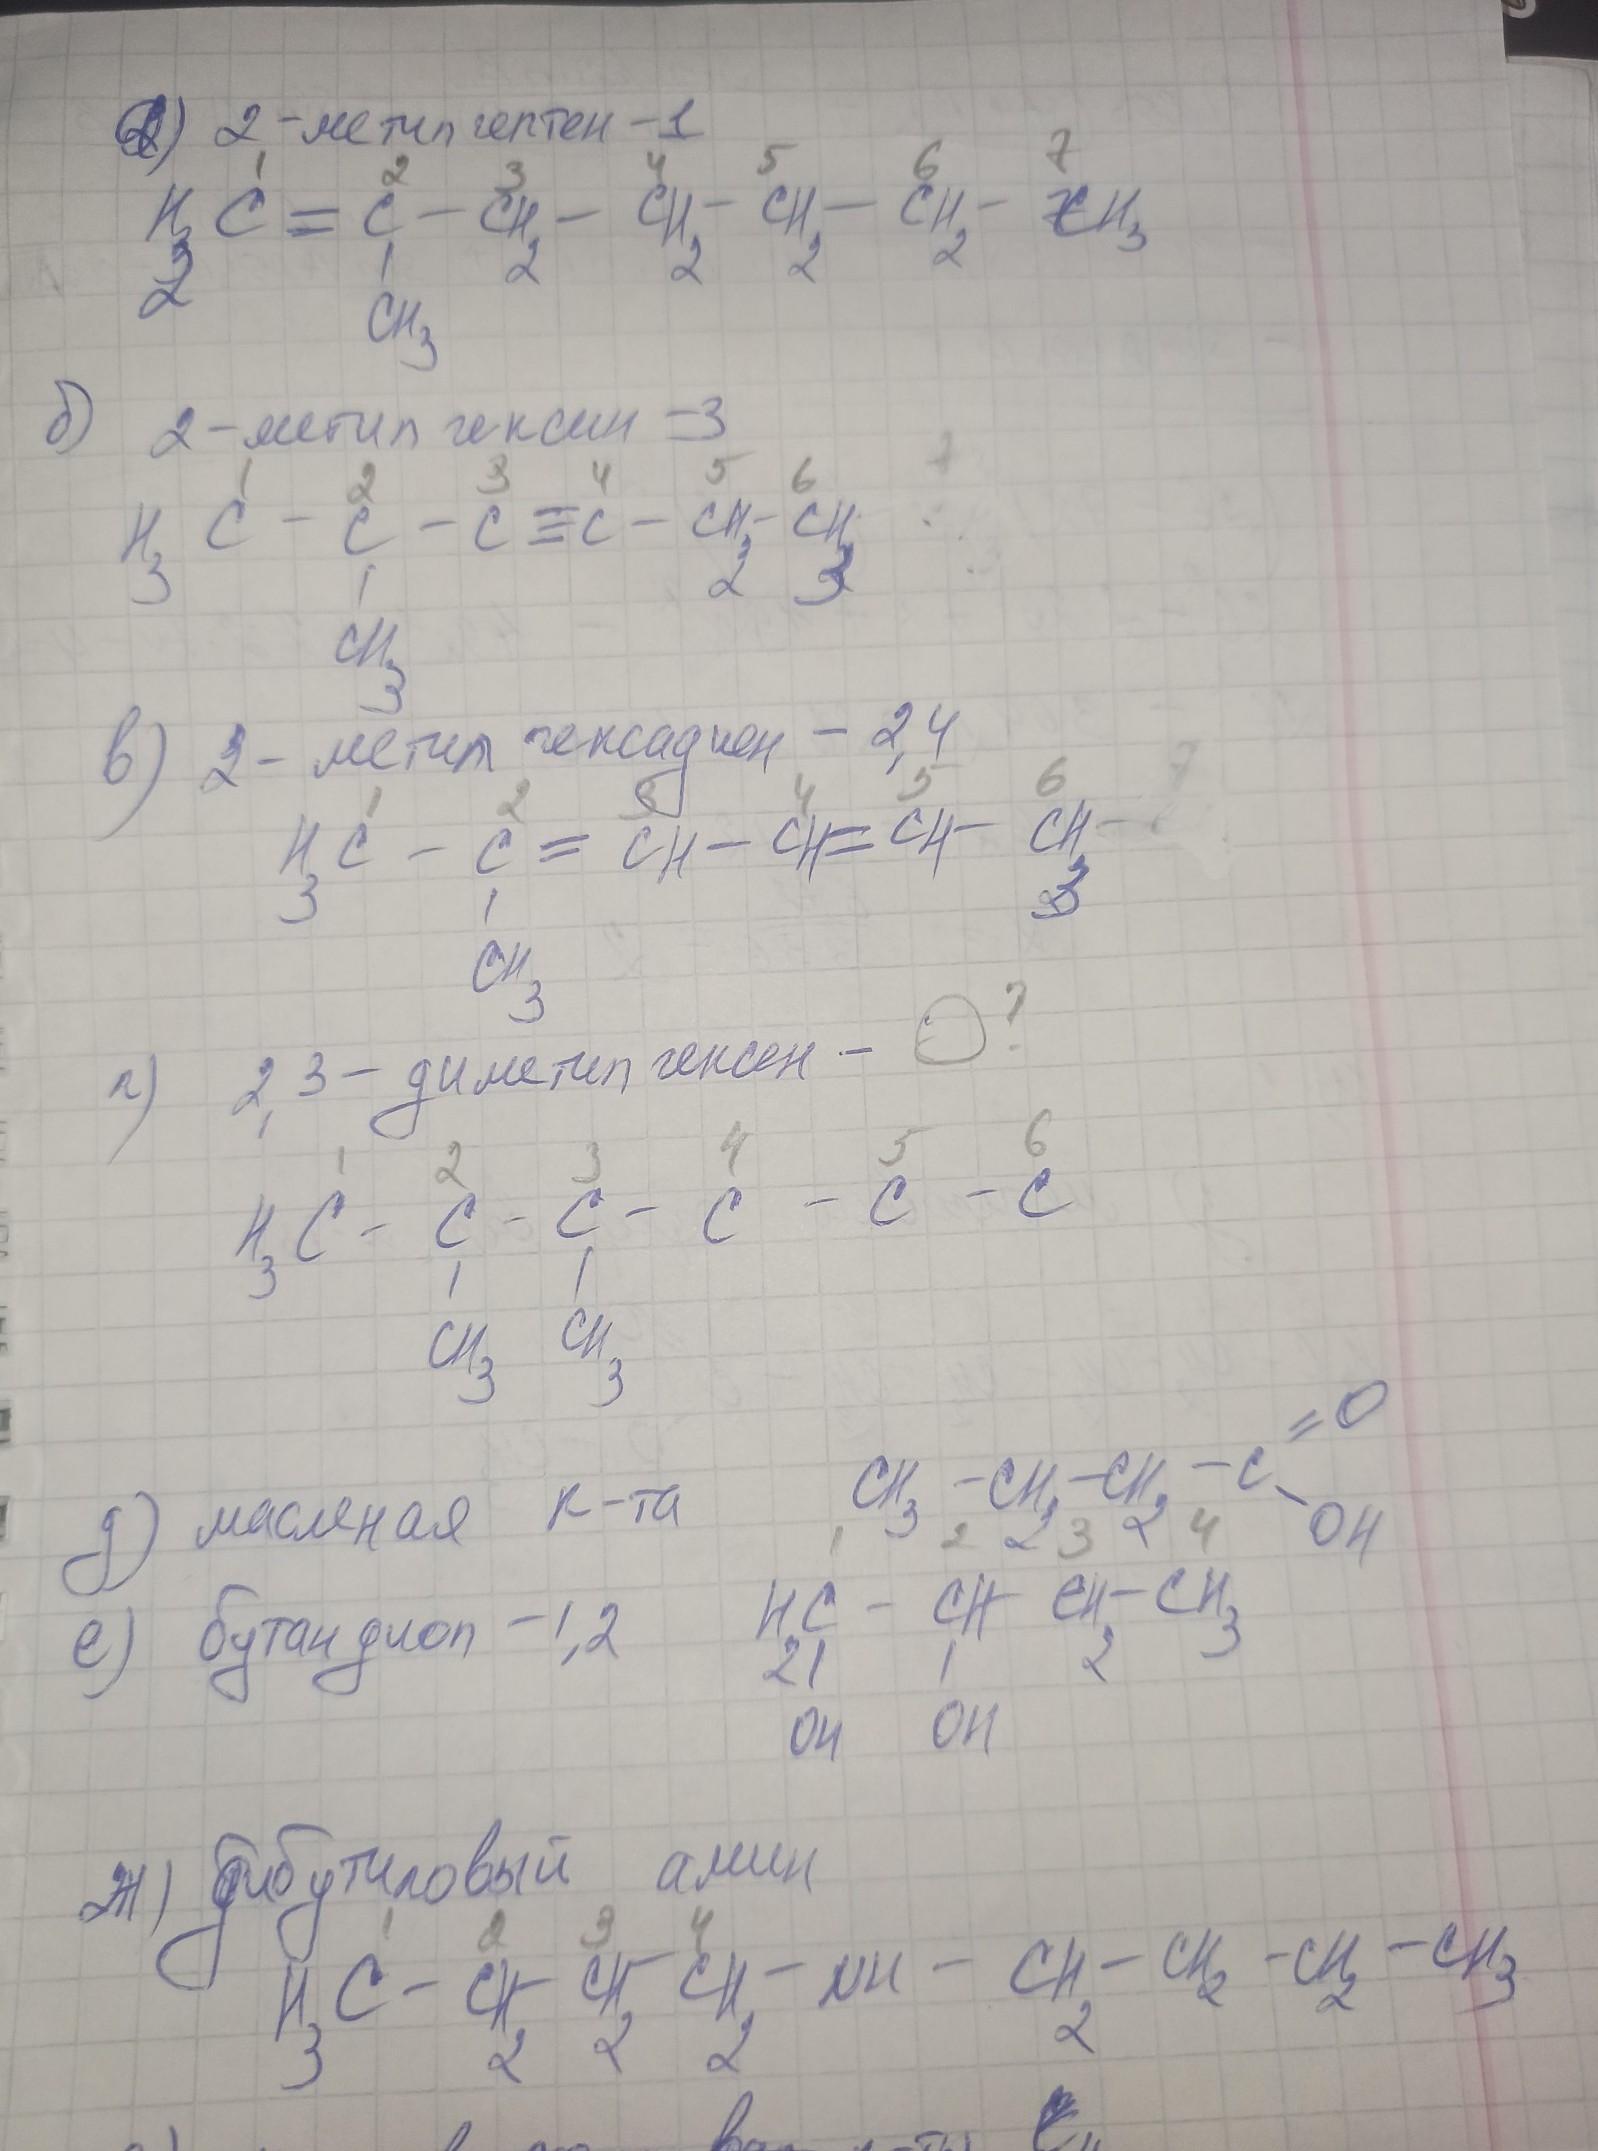 а) 2-метилгептен-1
1 2 3 4 5 6 7
H2C = C - CH2 - CH2 - CH2 - CH2 - CH3
CH3
б) 2-метилгексин-3
1 2 3 4 5 6 7
H3C - C - C ≡ C - CH2 - CH3
CH3
в) 2-метилгексадиен-2,4
1 2 3 4 5 6 7
H3C - C = CH - CH = CH - CH3 -
CH3
г) 2,3-диметилгексен - ?
1 2 3 4 5 6
H3C - C - C - C - C - C
CH3 CH3
д) масленая к-та CH3 - CH2 - CH2 - C =O OH
1 2 3 4
е) бутандиол-1,2 H2C - CH - CH2 - CH3
OH OH
ж) дибутиловый амин
1 2 3 4
H3C - CH2 - CH2 - CH2 - NH - CH2 - CH2 - CH2 - CH3